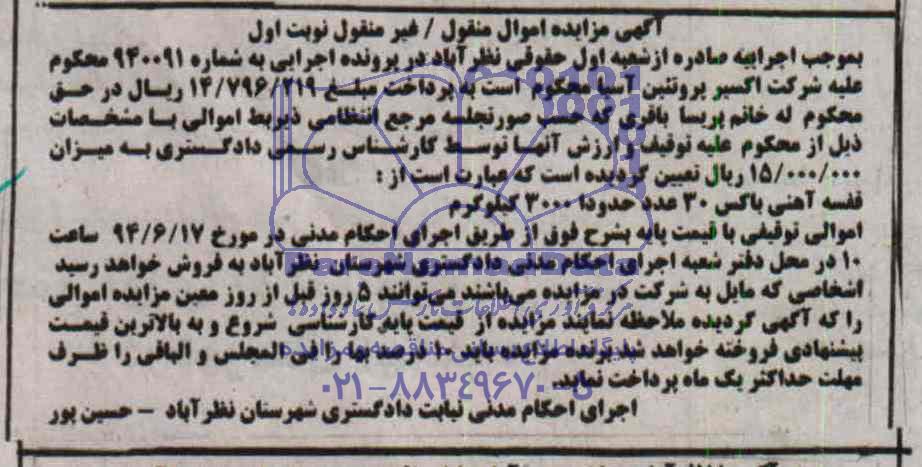 آگهی مزایده اموال منقول / غیر منقول نوبت اول
بموجب اجراییه صادره از شعبه اول حقوقی نظر آباد در پرونده اجرایی به شماره ۹۴۰۰۹۱ محکوم
علیه شرکت اکسیر پروتئین آسیا محکوم است به پرداخت مبلغ ۱۴/۷۹۶/۲۱۹ ریال در حق
محکوم له خانم پریسا باقری که حسب صورتجلسه مرجع انتظامی ذیربط اموالی با مشخصات
ذیل از محکوم علیه توقیف و ارزش آنها توسط کارشناس رسمی دادگستری به میزان
۱۵/۰۰۰/۰۰۰ ریال تعیین گردیده است که عبارت است از :
قفسه آهنی باکس ۳۰ عدد حدودا ۳۰۰۰ کیلوگرم
اموالی توقیفی با قیمت پایه بشرح فوق از طریق اجرای احکام مدنی در مورخ ۹۴/۶/۱۷ ساعت
۱۰ در محل دفتر شعبه اجرای احکام مدنی دادگستری شهرستان نظر آباد به فروش خواهد رسید
اشخاصی که مایل به شرکت در مزایده می باشند می توانند ۵ روز قبل از روز معین مزایده اموالی
را که آگهی گردیده ملاحظه نمایند مزایده از قیمت پایه کارشناسی شروع و به بالاترین قیمت
پیشنهادی فروخته خواهد شد برنده مزایده باید ۱۰ درصد بها را فی المجلس و الباقی را ظرف
مهلت حداکثر یک ماه پرداخت نماید.
۰۲۱-۸۸۳۴۹۶۷۰-۵
اجرای احکام مدنی نیابت دادگستری شهرستان نظر آباد - حسین پور